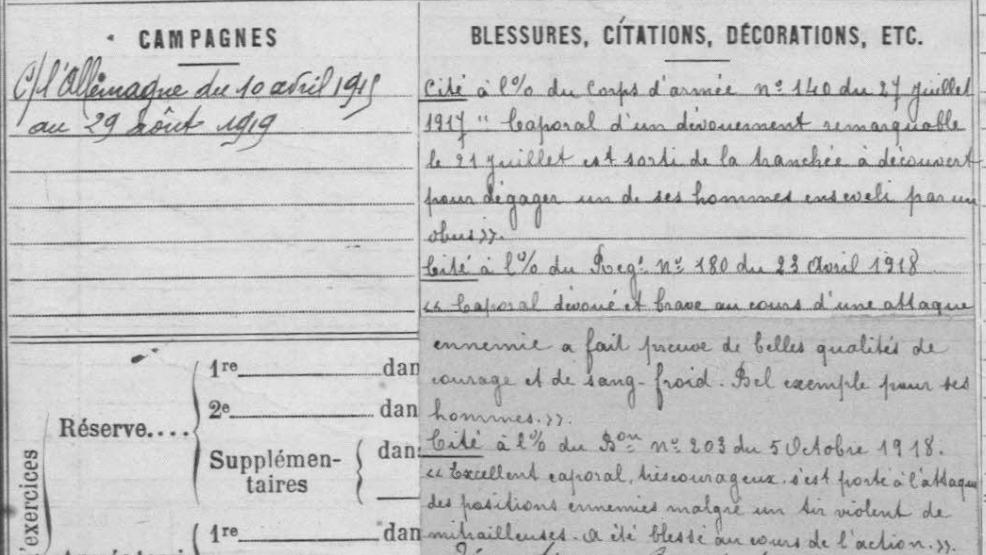 CAMPAGNES
C/ l'Allemagne du 10 avril 1915
au 29 août 1919
BLESSURES, CITATIONS, DÉCORATIONS, ETC.
Cité à l'% du Corps d'armée n° 140 du 27 juillet
1917 " Caporal d'un dévouement remarquable
le 21 juillet est sorti de la tranchée à découvert
pour dégager un de ses hommes enseveli par un
obus ».
Cité à l'% du Regt N° 180 du 23 Avril 1918
« Caporal dévoué et brave au cours d'une attaque
ennemie a fait preuve de belles qualités de
courage et de sang-froid. Bel exemple pour ses
hommes. »
Cité à l'% du Bon n° 203 du 5 Octobre 1918.
« Excellent caporal, très courageux, s'est porté à l'attaque
des positions ennemies malgré un tir violent de
mitrailleuses. A été blessé au cours de l'action. »
l'exercices
Réserve....
1re dan
2e dan
Supplémen-
taires
dans
1re dan